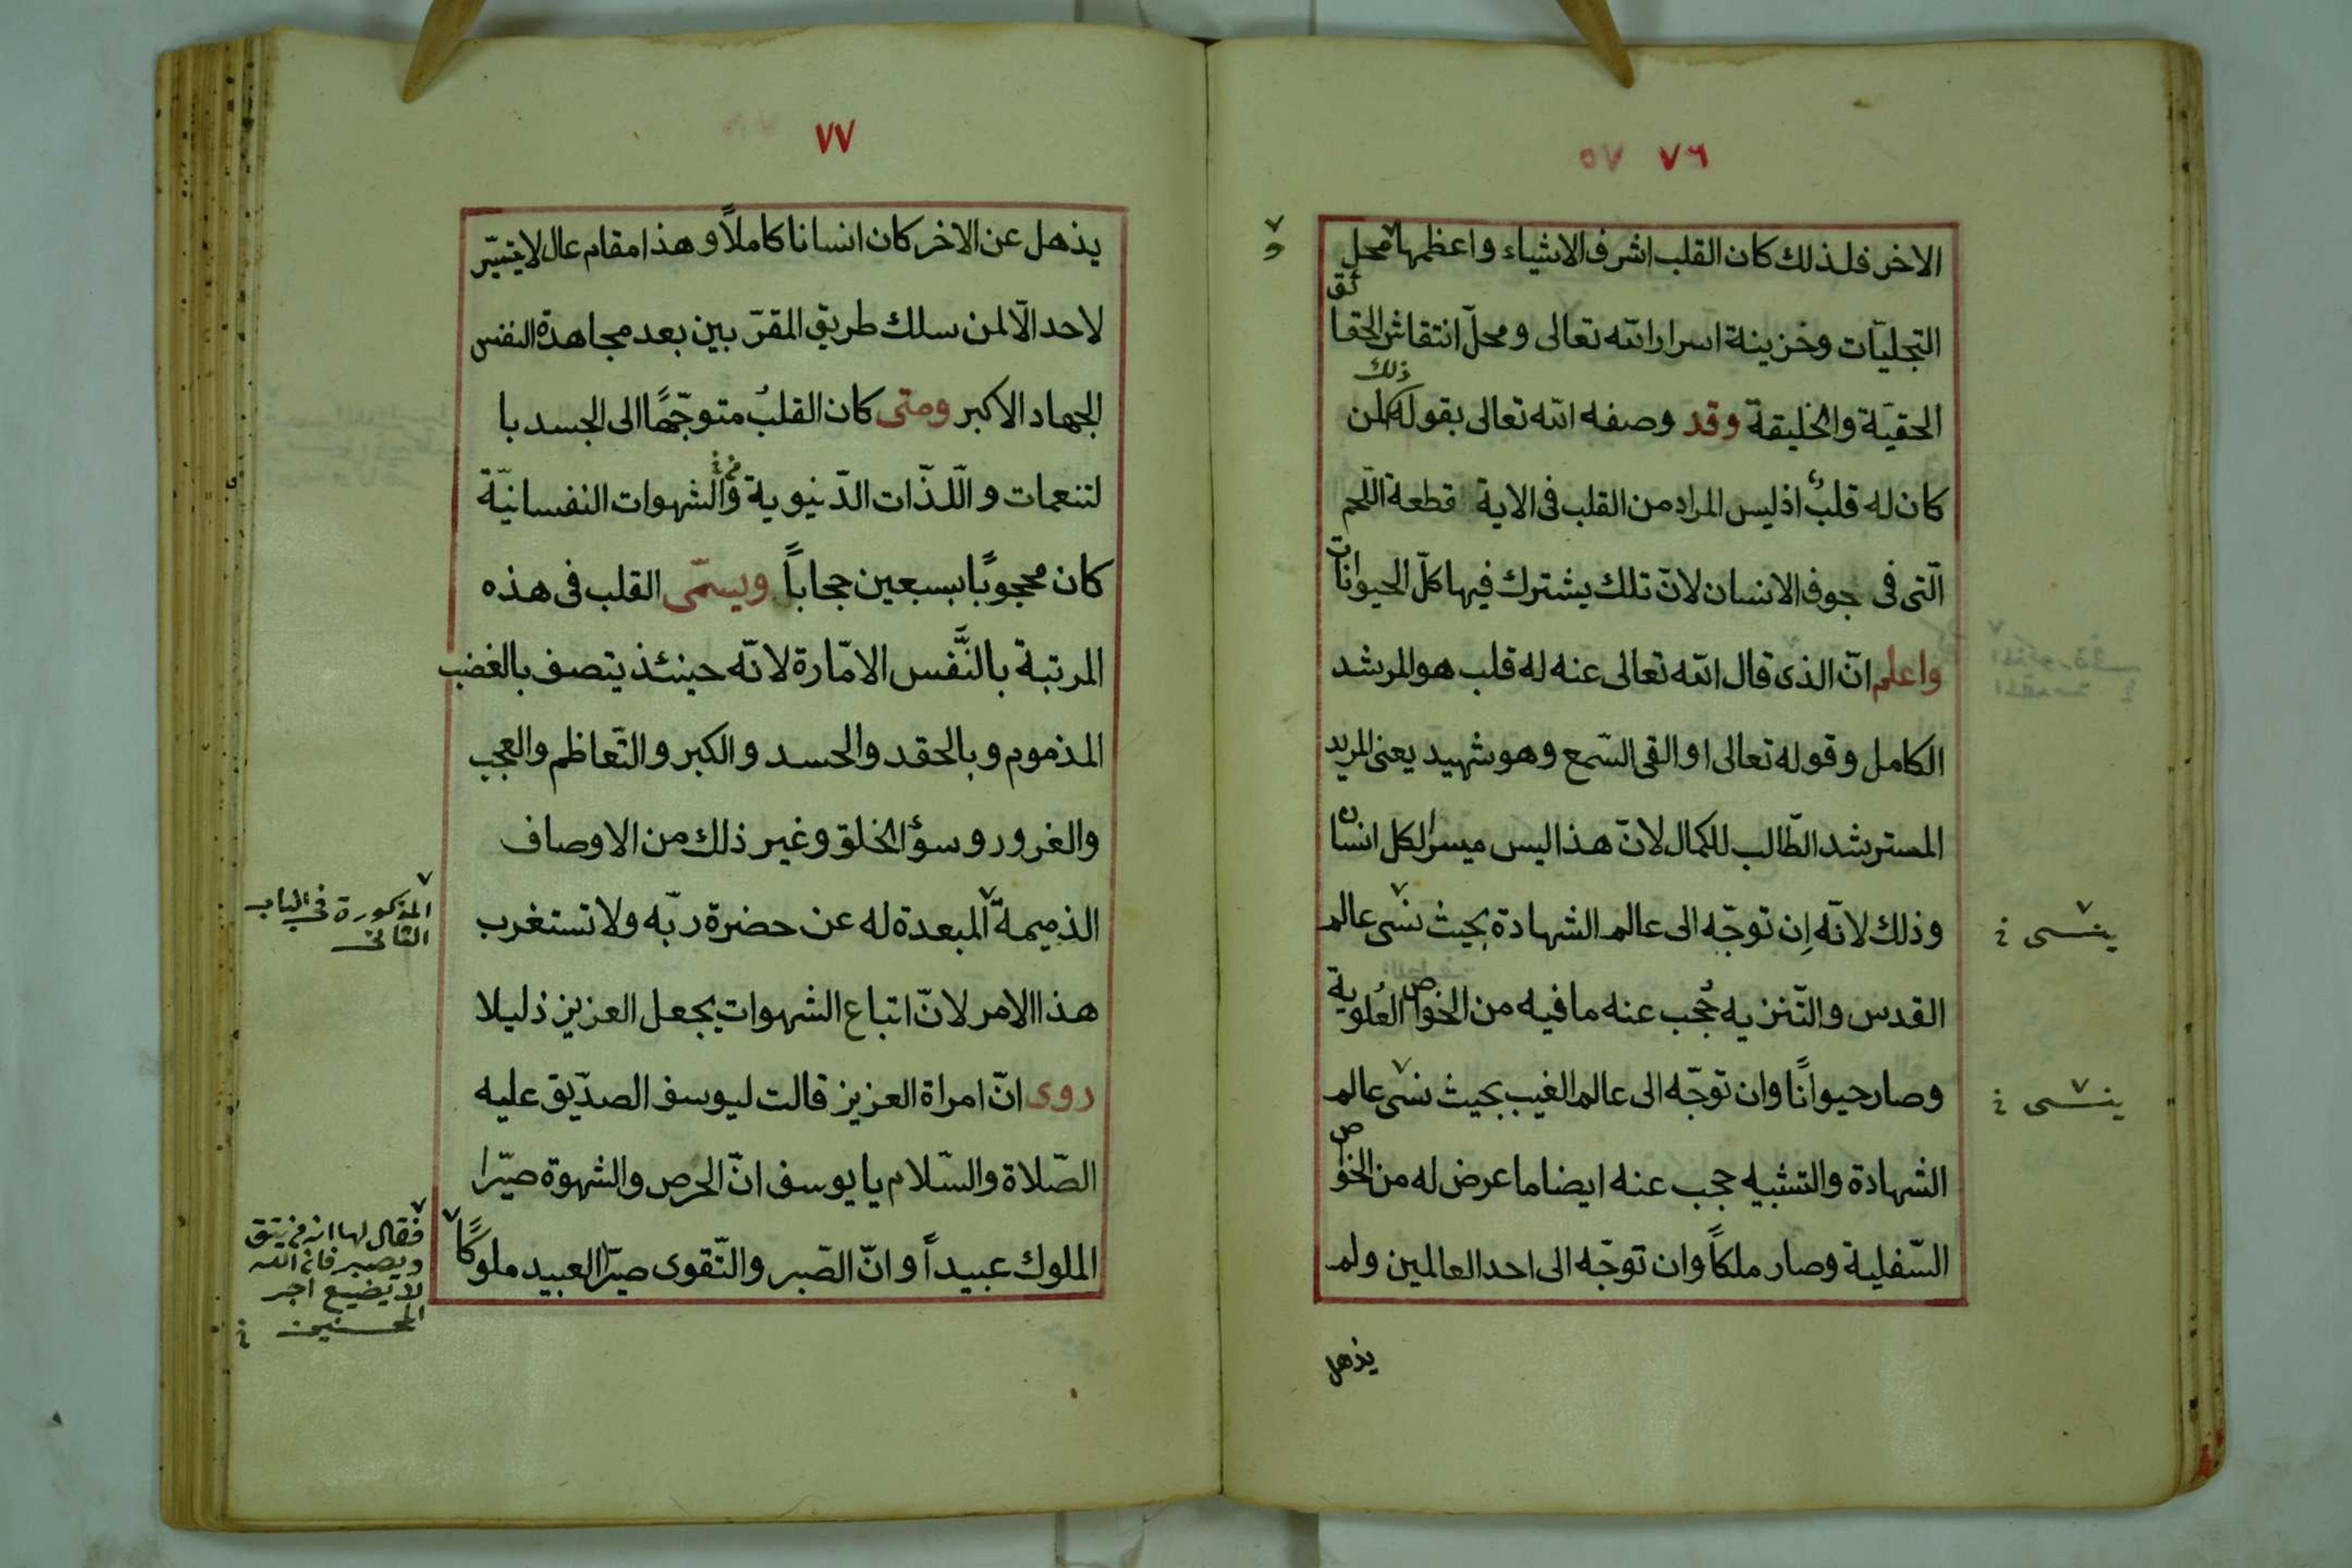 ٧٦ ٥٧
الاخر فلذلك كان القلب اشرف الاشياء واعظمها محل
و
التجليّات وخزينة اسرار الله تعالى ومحلّ انتقاش الحقائق
الحقيّة والخليقة وقد وصفه الله تعالى بقوله ذلك لمن
كان له قلبٌ اذ ليس المراد من القلب فى الاية قطعة اللّحم
الّتى فى جوف الانسان لانّ تلك يشترك فيها كلّ الحيوانات
واعلم انّ الذى قال الله تعالى عنه له قلب هو المرشد
الكامل وقوله تعالى او القى السّمع وهو شهيد يعنى المريد
المسترشد الطّالب للكمال لانّ هذا ليس ميسرا لكل انسان
وذلك لانّه اِن توجّه الى عالم الشهادة بحيث نسى عالم
ينسى
القدس والتّنزيه حُجب عنه ما فيه من الخواص العُلوية
وصار حيوانًا وان توجّه الى عالم الغيب بحيث نسى عالم
ينسى
الشهادة والتشبيه حجب عنه ايضا ما عرض له من الخواص
السّفلية وصار ملكاً وان توجّه الى احد العالمين ولم
يذهل
٧٧
يذهل عن الاخر كان انسانا كاملاً وهذا مقام عال لا يتيسّر
لاحد الّا لمن سلك طريق المقرّبين بعد مجاهدة النفس
الجهاد الاكبر ومتى كان القلبُ متوجّهًا الى الجسد با
لتنعمات واللّذّات الدّنيوية والشهوات النفسانيّة
كان محجوبًا بسبعين حجاباً ويسمّى القلب فى هذه
المرتبة بالنَّفس الامّارة لانّه حينئذ يتصف بالغضب
المذموم وبالحقد والحسد والكبر والتّعاظم والعجب
والغرور وسؤ الخلق وغير ذلك من الاوصاف
الذميمة المبعدة له عن حضرة ربّه ولا تستغرب
المذكورة فى الباب
الثانى
هذا الامر لانّ اتباع الشهوات يجعل العزيز ذليلا
روى انّ امراة العزيز قالت ليوسف الصدّيق عليه
الصّلاة والسّلام يا يوسف انّ الحرص والشهوة صيّرا
الملوك عبيداً وانّ الصّبر والتّقوى صيّرا العبيد ملوكًا
فقال لها انه من يتق
ويصبر فان الله
لا يضيع اجر
المحسنين